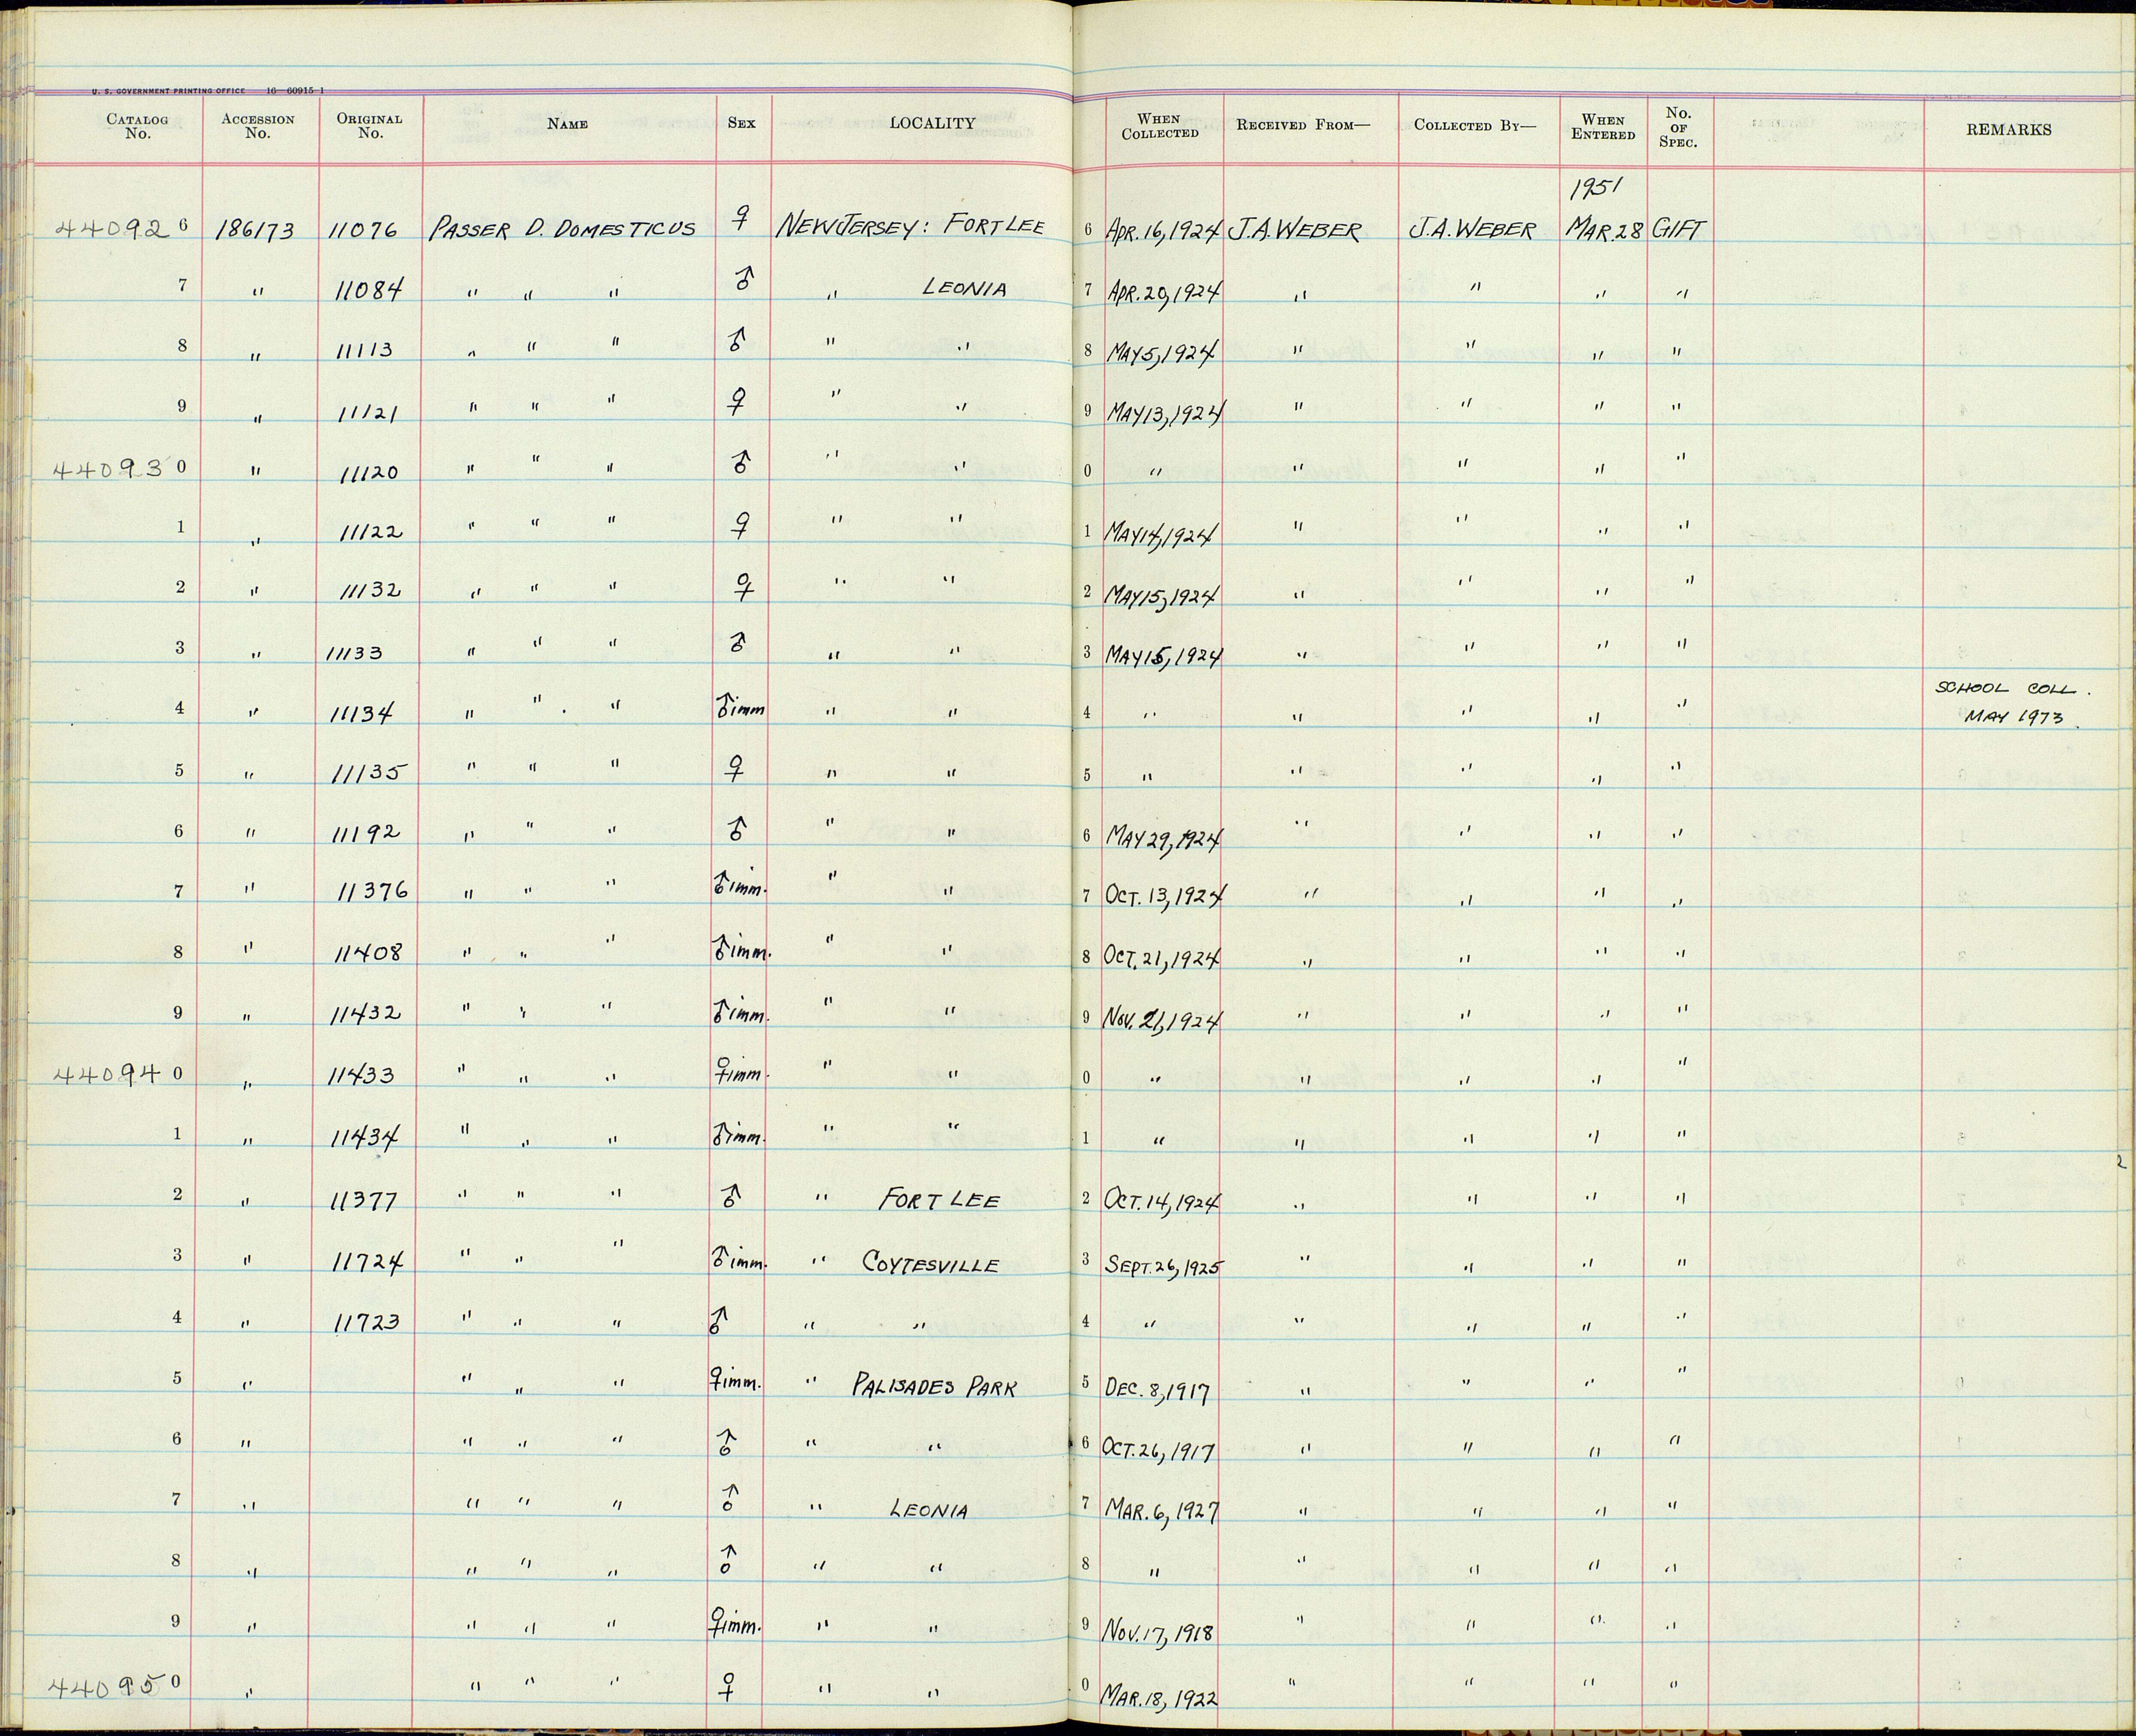 U. S. GOVERNMENT PRINTING OFFICE 16—60915-1
CATALOG No. ACCESSION No. ORIGINAL No. NAME SEX LOCALITY WHEN COLLECTED RECEIVED FROM— COLLECTED BY— WHEN ENTERED No. OF SPEC. REMARKS
1951
440926 186173 11076 PASSER D. DOMESTICUS ♀ NEW JERSEY: FORT LEE 6 APR. 16, 1924 J.A. WEBER J.A. WEBER MAR. 28 GIFT
7 " 11084 " " " ♂ " LEONIA 7 APR. 20, 1924 " " " "
8 " 11113 " " " ♂ " " 8 MAY 5, 1924 " " " "
9 " 11121 " " " ♀ " " 9 MAY 13, 1924 " " " "
440930 " 11120 " " " ♂ " " 0 " " " " "
1 " 11122 " " " ♀ " " 1 MAY 14, 1924 " " " "
2 " 11132 " " " ♀ " " 2 MAY 15, 1924 " " " "
3 " 11133 " " " ♂ " " 3 MAY 15, 1924 " " " "
4 " 11134 " " " ♂ imm " " 4 " " " " " SCHOOL COLL. MAY 1973.
5 " 11135 " " " ♀ " " 5 " " " " "
6 " 11192 " " " ♂ " " 6 MAY 29, 1924 " " " "
7 " 11376 " " " ♂ imm. " " 7 OCT. 13, 1924 " " " "
8 " 11408 " " " ♂ imm. " " 8 OCT. 21, 1924 " " " "
9 " 11432 " " " ♂ imm. " " 9 NOV. 21, 1924 " " " "
440940 " 11433 " " " ♀ imm. " " 0 " " " " "
1 " 11434 " " " ♂ imm. " " 1 " " " " "
2 " 11377 " " " ♂ " FORT LEE 2 OCT. 14, 1924 " " " "
3 " 11724 " " " ♂ imm. " COYTESVILLE 3 SEPT. 26, 1925 " " " "
4 " 11723 " " " ♂ " " 4 " " " " "
5 " " " " ♀ imm. " PALISADES PARK 5 DEC. 8, 1917 " " " "
6 " " " " ♂ " " 6 OCT. 26, 1917 " " " "
7 " " " " ♂ " LEONIA 7 MAR. 6, 1927 " " " "
8 " " " " ♂ " " 8 " " " " "
9 " " " " ♀ imm. " " 9 NOV. 17, 1918 " " " "
440950 " " " " ♀ " " 0 MAR. 18, 1922 " " " "